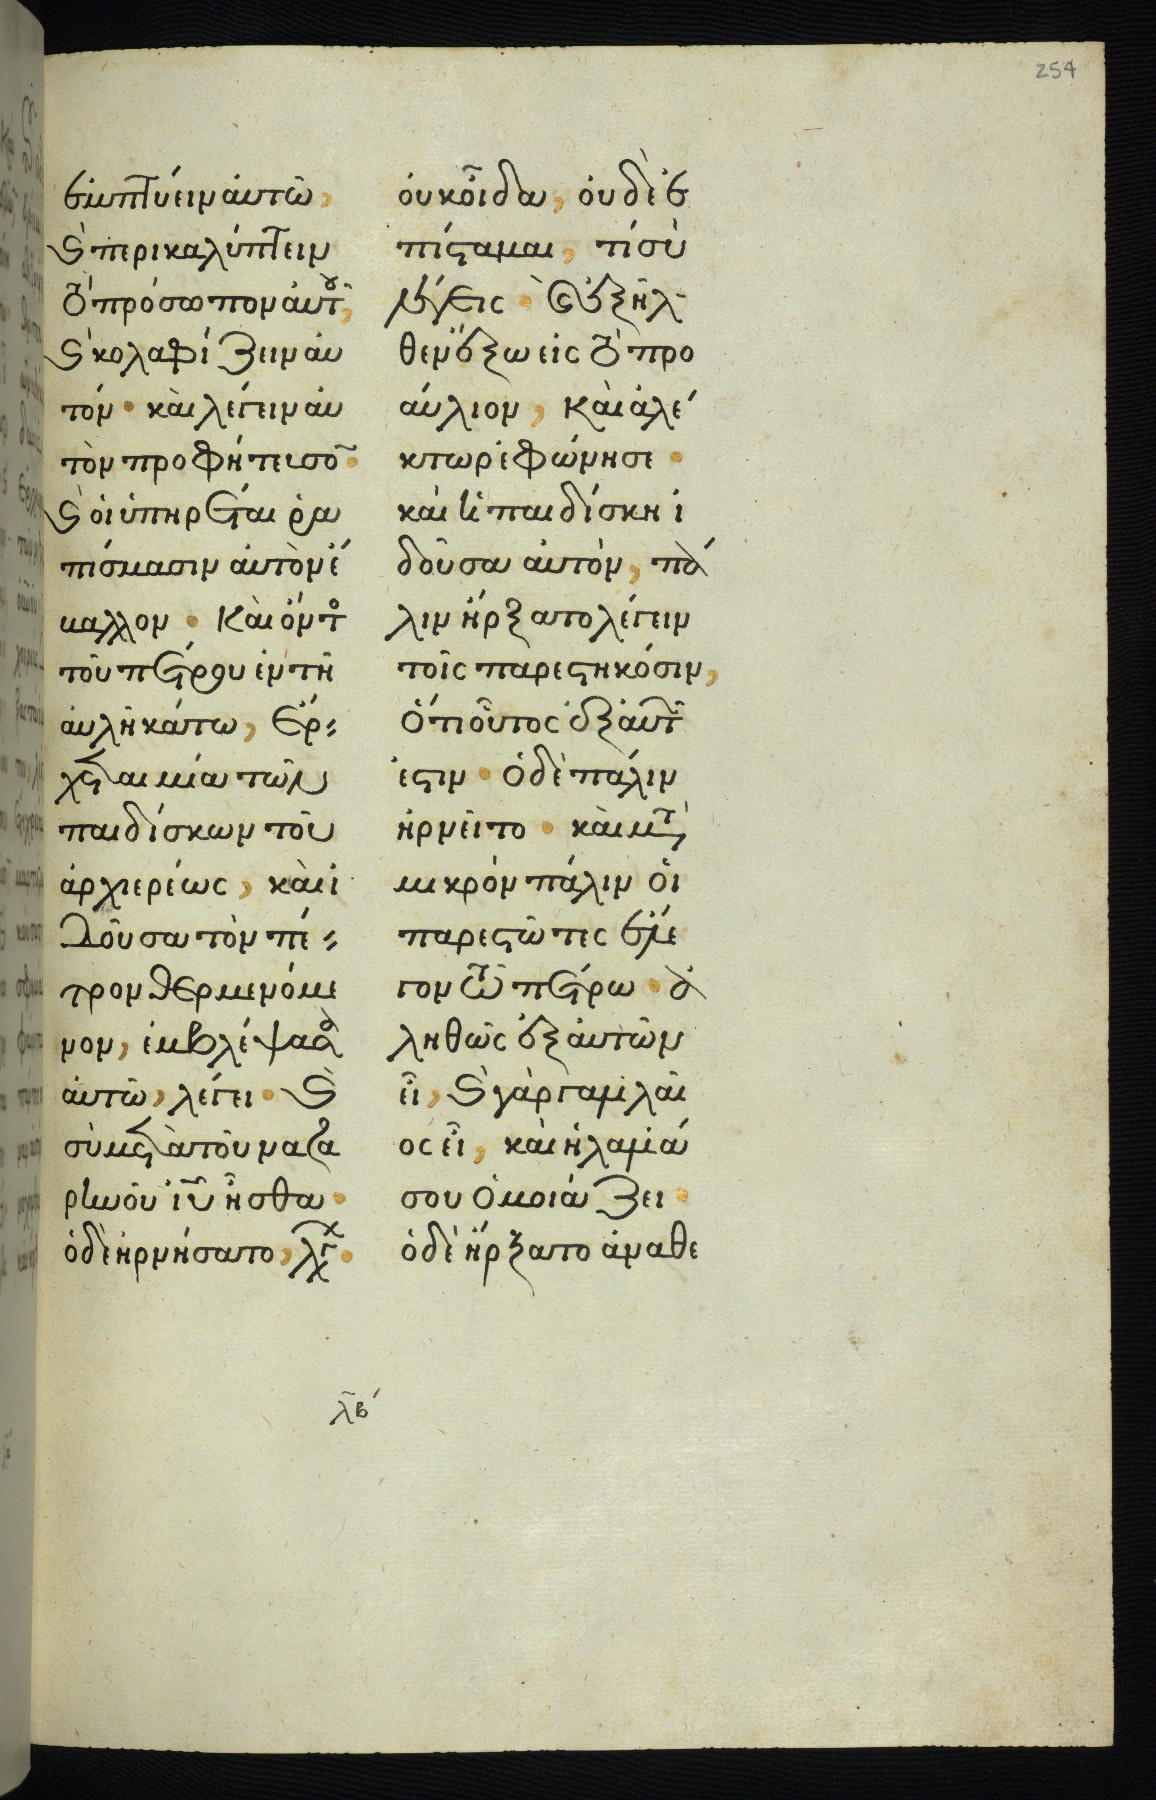 254
ἐμπτύειν ἀυτῶ,
ϗ περικαλύπτειν
τὸ πρόσωπον ἀυτοῦ,
ϗ κολαφίζειν ἀυ
τόν · καὶ λέγειν ἀυ
τὸν προφήτευσον ·
ϗ ὁι ὑπηρέται ῥα
πίσμασιν ἀυτὸν ἔ
βαλλον · Καὶ ὄντος
τοῦ πέτρου ἐν τῆ
ἀυλῆ κάτω, ἔρ
χεται μία τῶν
παιδίσκων τοῦ
ἀρχιερέως, καὶ ἰ
δοῦσα τὸν πέ
τρον θερμενόμε
νον, ἐμβλέψασα
ἀυτῶ, λέγει · ϗ
σὺ μετὰ τοῦ ναζα
ρινοῦ ἰῦ ἦσθα ·
ὁ δὲ ἠρνήσατο, λέγων ·
ὀυκ οἶδα, ὀυδὲ ἐ
πίσταμαι, τί σὺ
λέγεις · ϗ ἐξῆλ
θεν ἔξω εἰς τὸ προ
αύλιον, καὶ ἀλέ
κτωρ ἐφώνησε ·
καὶ ἡ παιδίσκη ἰ
δοῦσα ἀυτὸν, πά
λιν ἤρξατο λέγειν
τοῖς παρεστηκόσιν,
ὅτι οὗτος ἐξ ἀυτῶν
ἐστιν · ὁ δὲ πάλιν
ἠρνεῖτο · καὶ μετὰ
μικρὸν πάλιν ὁι
παρεστῶτες ἔλε
γον τῶ πέτρω · ἀ
ληθῶς ἐξ ἀυτῶν
εἶ, ϗ γὰρ γαλιλαῖ
ος εἶ, καὶ ἡ λαλιά
σου ὁμοιάζει ·
ὁ δὲ ἤρξατο ἀναθε
λβ